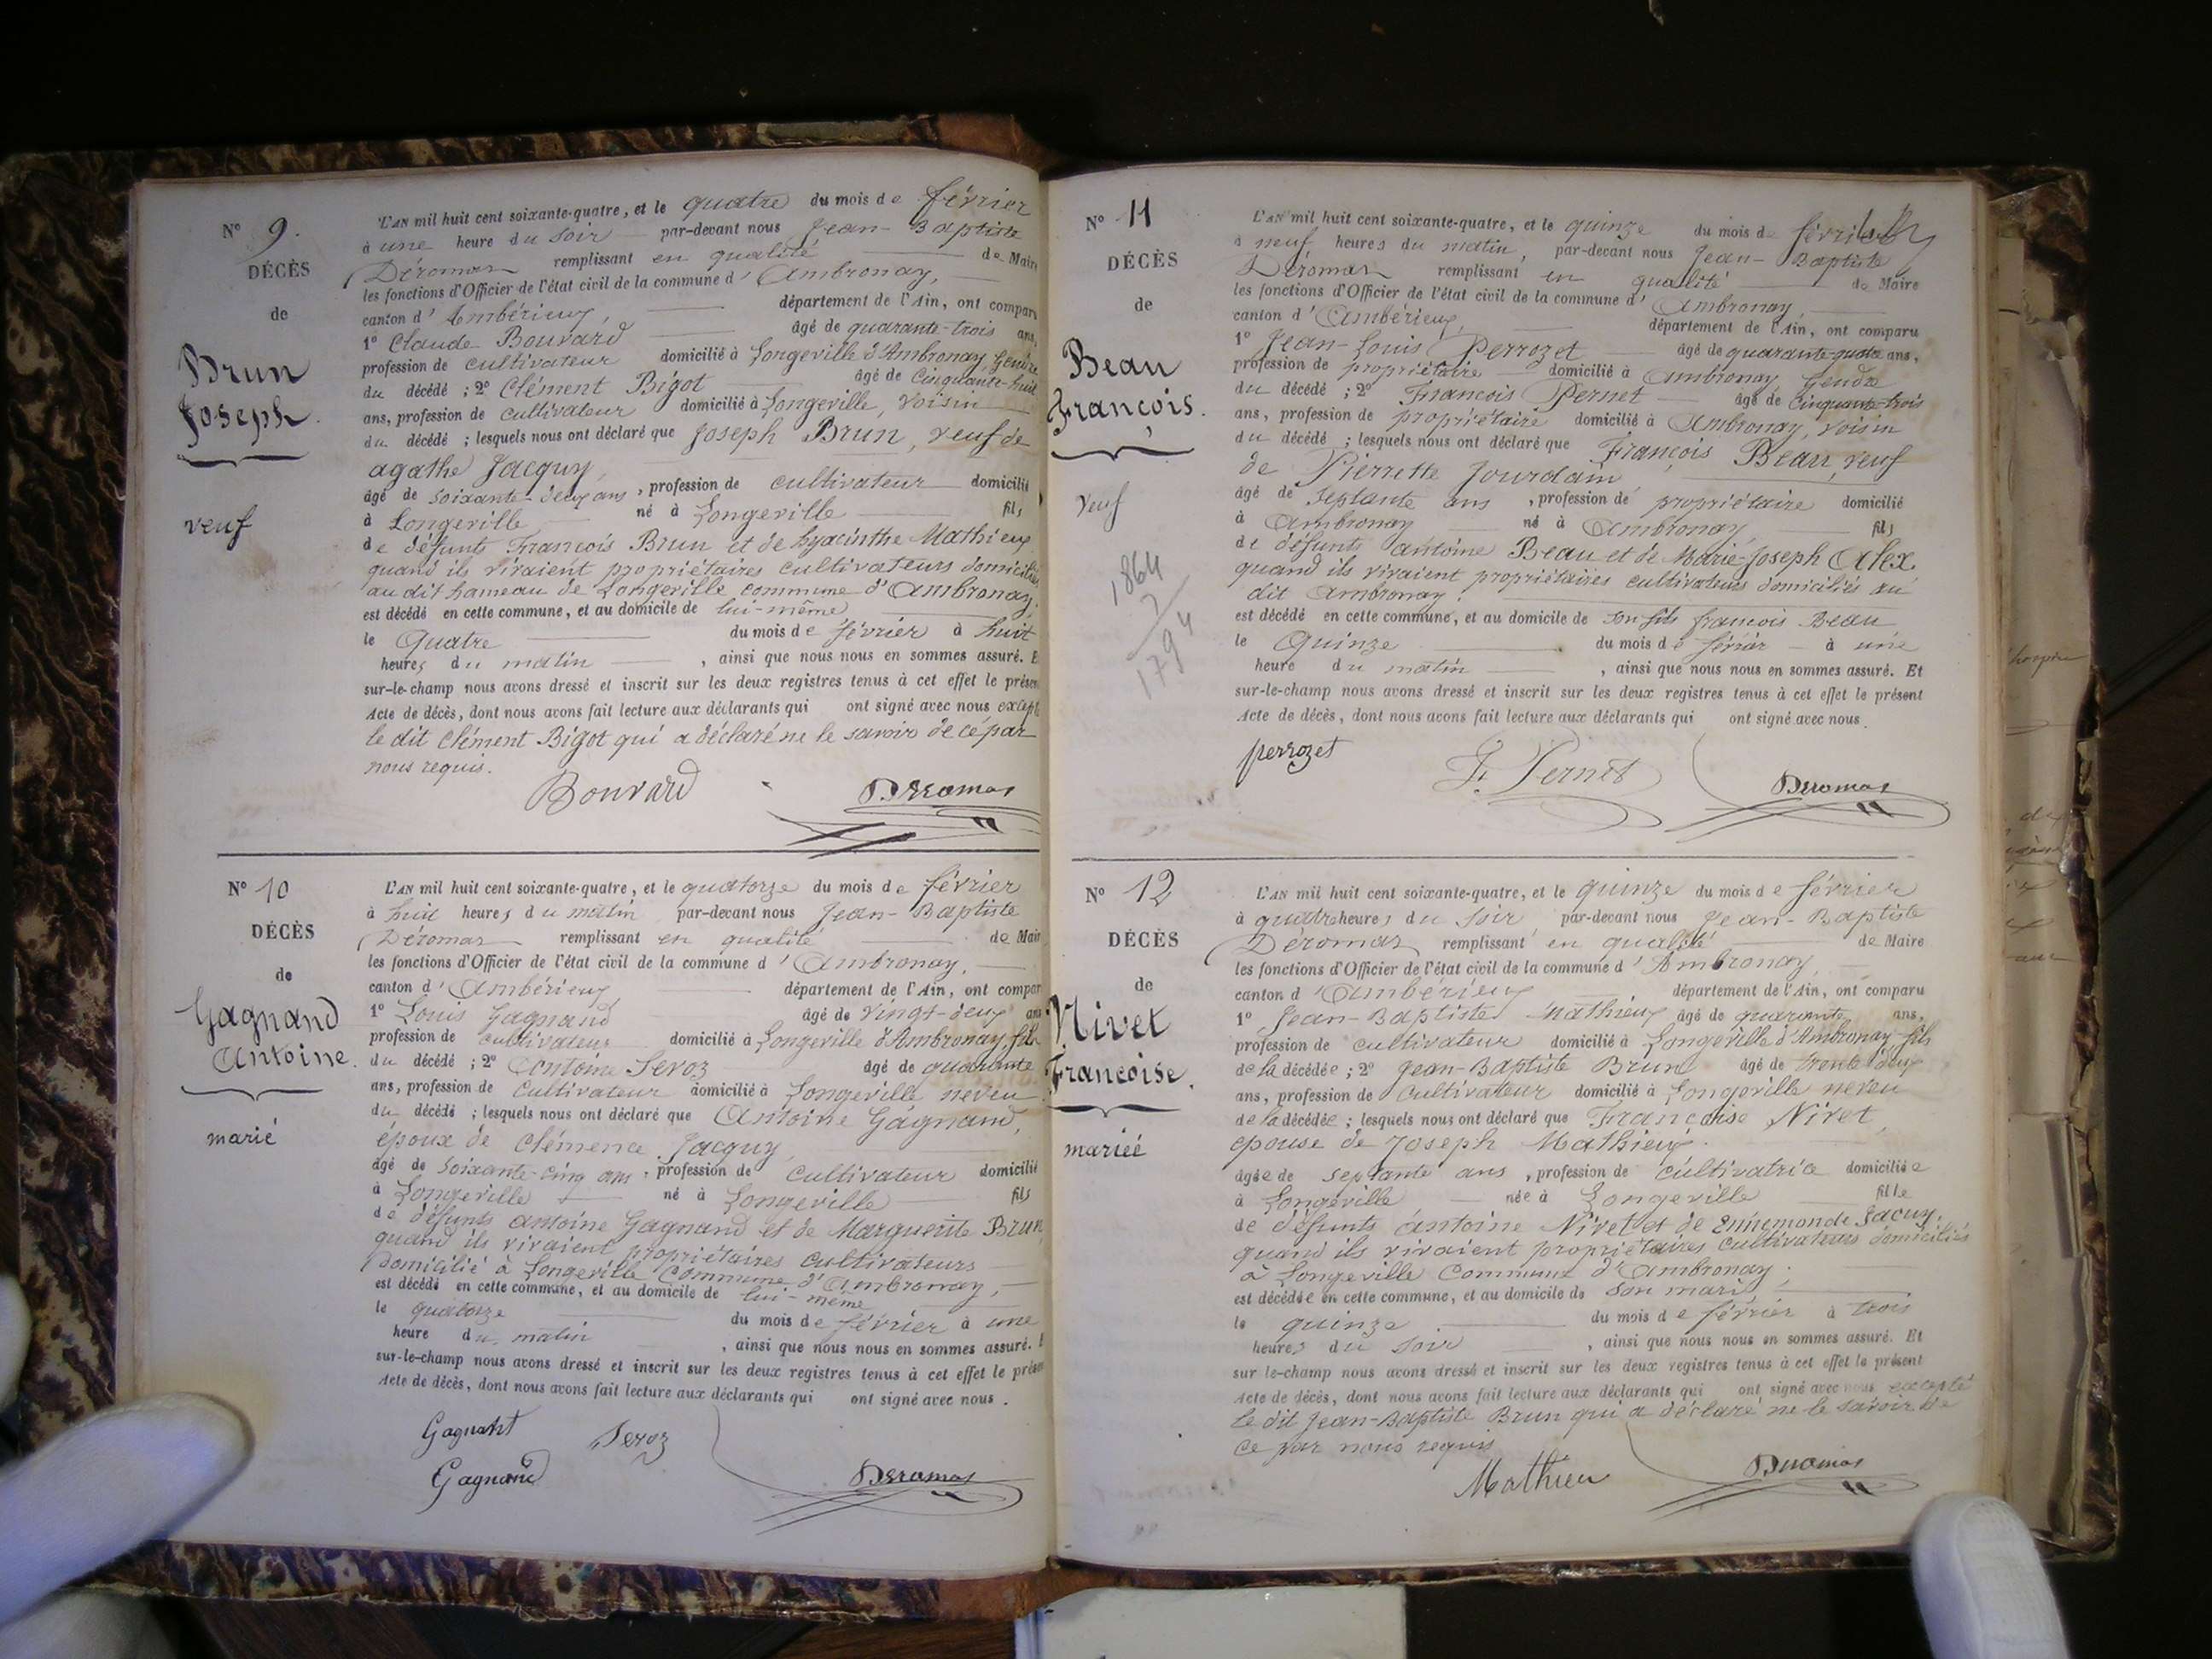 N° 9.
DÉCÈS
de
Brun
Joseph.
veuf
L'AN mil huit cent soixante-quatre, et le quatre du mois de février
à une heure du soir par-devant nous Jean-Baptiste
Déromas remplissant en qualité de Maire
les fonctions d'Officier de l'état civil de la commune d'Ambronay,
canton d'Ambérieux, département de l'Ain, ont comparu
1° Claude Bouvard âgé de quarante-trois ans,
profession de cultivateur domicilié à Longeville d'Ambronay, Gendre
du décédé ; 2° Clément Bigot âgé de Cinquante-huit
ans, profession de cultivateur domicilié à Longeville, voisin
du décédé ; lesquels nous ont déclaré que Joseph Brun, veuf de
agathe Jacquy,
âgé de soixante-deux ans, profession de cultivateur domicilié
à Longeville né à Longeville fils
de défunts François Brun et de hyacinthe Mathieux
quand ils vivaient propriétaires cultivateurs domiciliés
au dit hameau de Longeville commune d'Ambronay,
est décédé en cette commune, et au domicile de lui-même
le Quatre du mois de février à huit
heures du matin, ainsi que nous nous en sommes assuré. E
sur-le-champ nous avons dressé et inscrit sur les deux registres tenus à cet effet le présen
Acte de décès, dont nous avons fait lecture aux déclarants qui ont signé avec nous excepté
le dit Clément Bigot qui a déclaré ne le savoir de cé par
nous requis.
Bouvard Deromas
N° 10
DÉCÈS
de
Gagnand
Antoine.
marié
L'AN mil huit cent soixante-quatre, et le quatorze du mois de février
à huit heures du matin par-devant nous Jean-Baptiste
Déromas remplissant en qualité de Mair
les fonctions d'Officier de l'état civil de la commune d'Ambronay,
canton d'Ambérieux département de l'Ain, ont compar
1° Louis Gagnand âgé de Vingt-deux ans
profession de cultivateur domicilié à Longeville d'Ambronay, fils
du décédé ; 2° Antoine Seroz âgé de quarante
ans, profession de Cultivateur domicilié à Longeville neveu
du décédé ; lesquels nous ont déclaré que Antoine Gagnand,
époux de Clémence Jacquy
âgé de soixante-cinq ans, profession de Cultivateur domicilié
à Longeville né à Longeville fils
de défunts antoine Gagnand et de Marguerite Brun,
quand ils vivaient propriétaires cultivateurs
domicilié à Longeville Commune d'Ambronay,
est décédé en cette commune, et au domicile de lui-même
le quatorze du mois de février à une
heure du matin, ainsi que nous nous en sommes assuré. E
sur-le-champ nous avons dressé et inscrit sur les deux registres tenus à cet effet le présen
Acte de décès, dont nous avons fait lecture aux déclarants qui ont signé avec nous.
Gagnant Seroz
Gagnand Deromas
N° 11
DÉCÈS
de
Beau
François.
Veuf
1864
7
1794
L'AN mil huit cent soixante-quatre, et le quinze du mois de février
à neuf heures du matin, par-devant nous Jean-Baptiste
Déromas remplissant en qualité de Maire
les fonctions d'Officier de l'état civil de la commune d'Ambronay,
canton d'Ambérieux, département de l'Ain, ont comparu
1° Jean-Louis Perrozet âgé de quarante-quatre ans,
profession de propriétaire domicilié à Ambronay, Gendre
du décédé ; 2° Francois Pernet âgé de Cinquante-trois
ans, profession de propriétaire domicilié à Ambronay, voisin
du décédé ; lesquels nous ont déclaré que François Beau, veuf
de Pierrette Jourdain
âgé de Septante ans, profession de propriétaire domicilié
à Ambronay né à Ambronay fils
de défunts antoine Beau et de Marie-Joseph Alex.
quand ils vivaient propriétaires cultivateurs domiciliés au
dit Ambronay.
est décédé en cette commune, et au domicile de son fils francois Beau
le Quinze du mois de février à une
heure du matin, ainsi que nous nous en sommes assuré. Et
sur-le-champ nous avons dressé et inscrit sur les deux registres tenus à cet effet le présent
Acte de décès, dont nous avons fait lecture aux déclarants qui ont signé avec nous.
perrozet F. Pernet Deromas
N° 12
DÉCÈS
de
Nivet
Francoise.
mariée
L'AN mil huit cent soixante-quatre, et le quinze du mois de février
à quatre heures du soir par-devant nous Jean-Baptiste
Déromas remplissant en qualité de Maire
les fonctions d'Officier de l'état civil de la commune d'Ambronay,
canton d'Ambérieux département de l'Ain, ont comparu
1° Jean-Baptiste Mathieux âgé de quarante ans,
profession de cultivateur domicilié à Longeville d'Ambronay fils
de la décédée ; 2° Jean-Baptiste Brun âgé de trente deux
ans, profession de Cultivateur domicilié à Longeville neveu
de la décédée ; lesquels nous ont déclaré que Françoise Nivet,
épouse de Joseph Mathieux.
âgée de septante ans, profession de cultivatrice domiciliée
à Longeville née à Longeville fille
de défunts antoine Nivet et de Ennemonde Jacuy.
quand ils vivaient propriétaires cultivateurs domiciliés
à Longeville Commune d'Ambronay;
est décédée en cette commune, et au domicile de son mari,
le quinze du mois de février à trois
heures du soir, ainsi que nous nous en sommes assuré. Et
sur le-champ nous avons dressé et inscrit sur les deux registres tenus à cet effet le présent
Acte de décès, dont nous avons fait lecture aux déclarants qui ont signé avec nous excepté
le dit Jean-Baptiste Brun qui a déclaré ne le savoir de
ce par nous requis
Mathieu Deromas